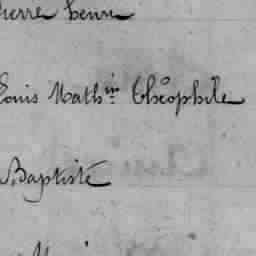 Pierre Henri
Louis Mathin Théophile
Baptiste